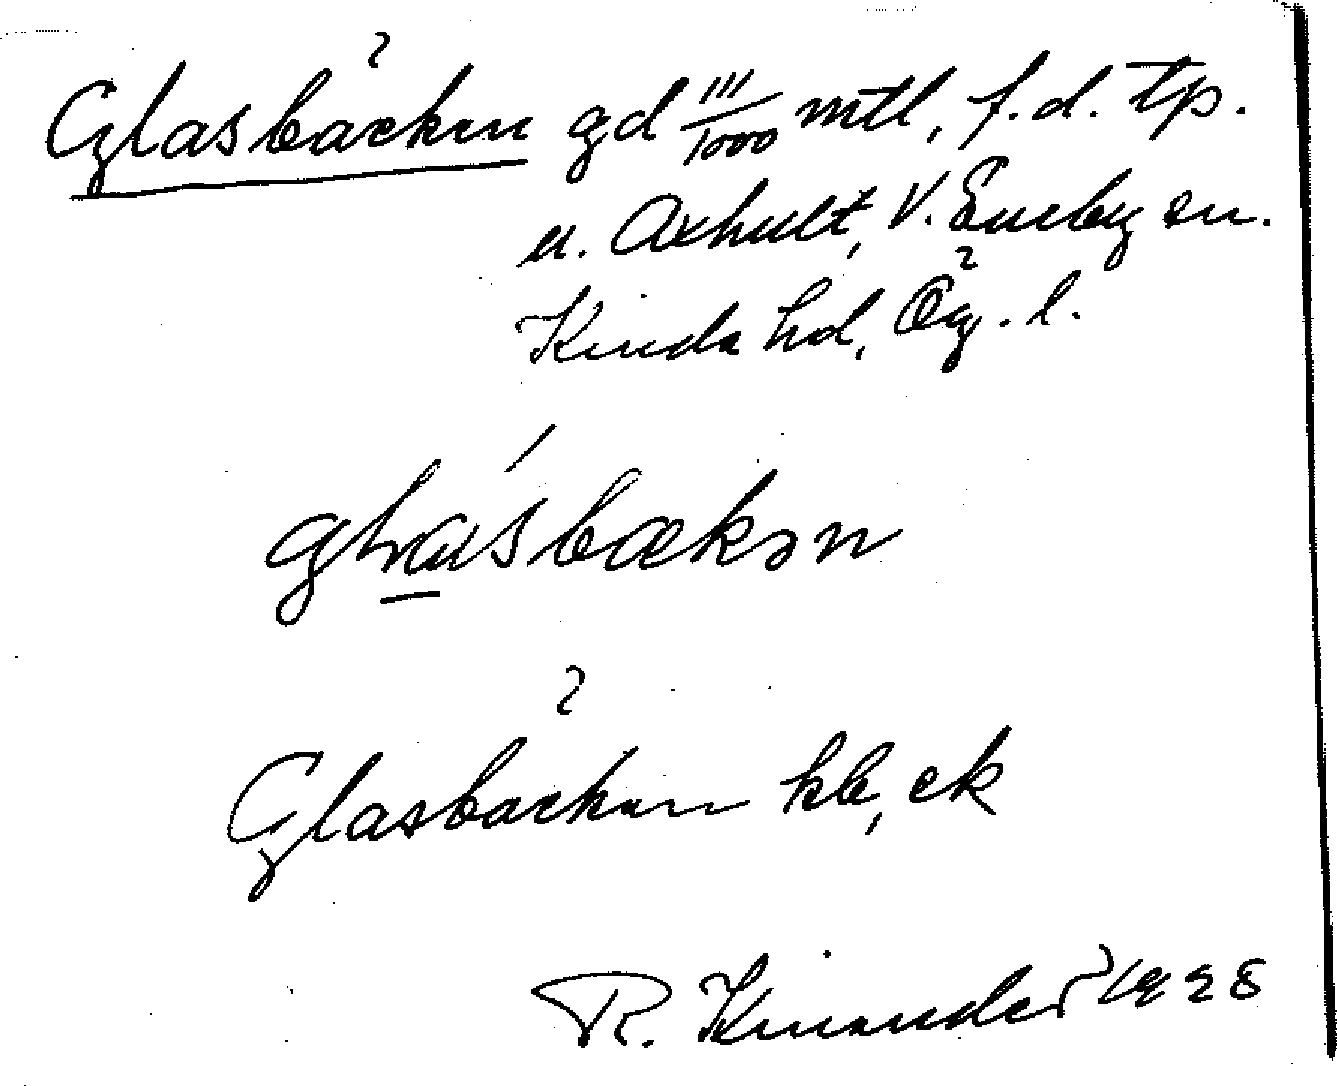 Glasbäcken gd 111/1000 mtl, f.d. tp.
u. Axhult, V. Eneby sn.
Kinda hd, Ög. l.
glɑ́sbækən
Glasbäcken kb, ek
R. Kinander 1928